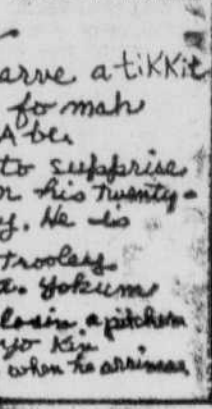 arve a tiKKit
fo mah
Abe.
to supprise
n his twenty-
y. He is
trooley
a. Yokum
losin a pitchem
yo kin
when he arrives